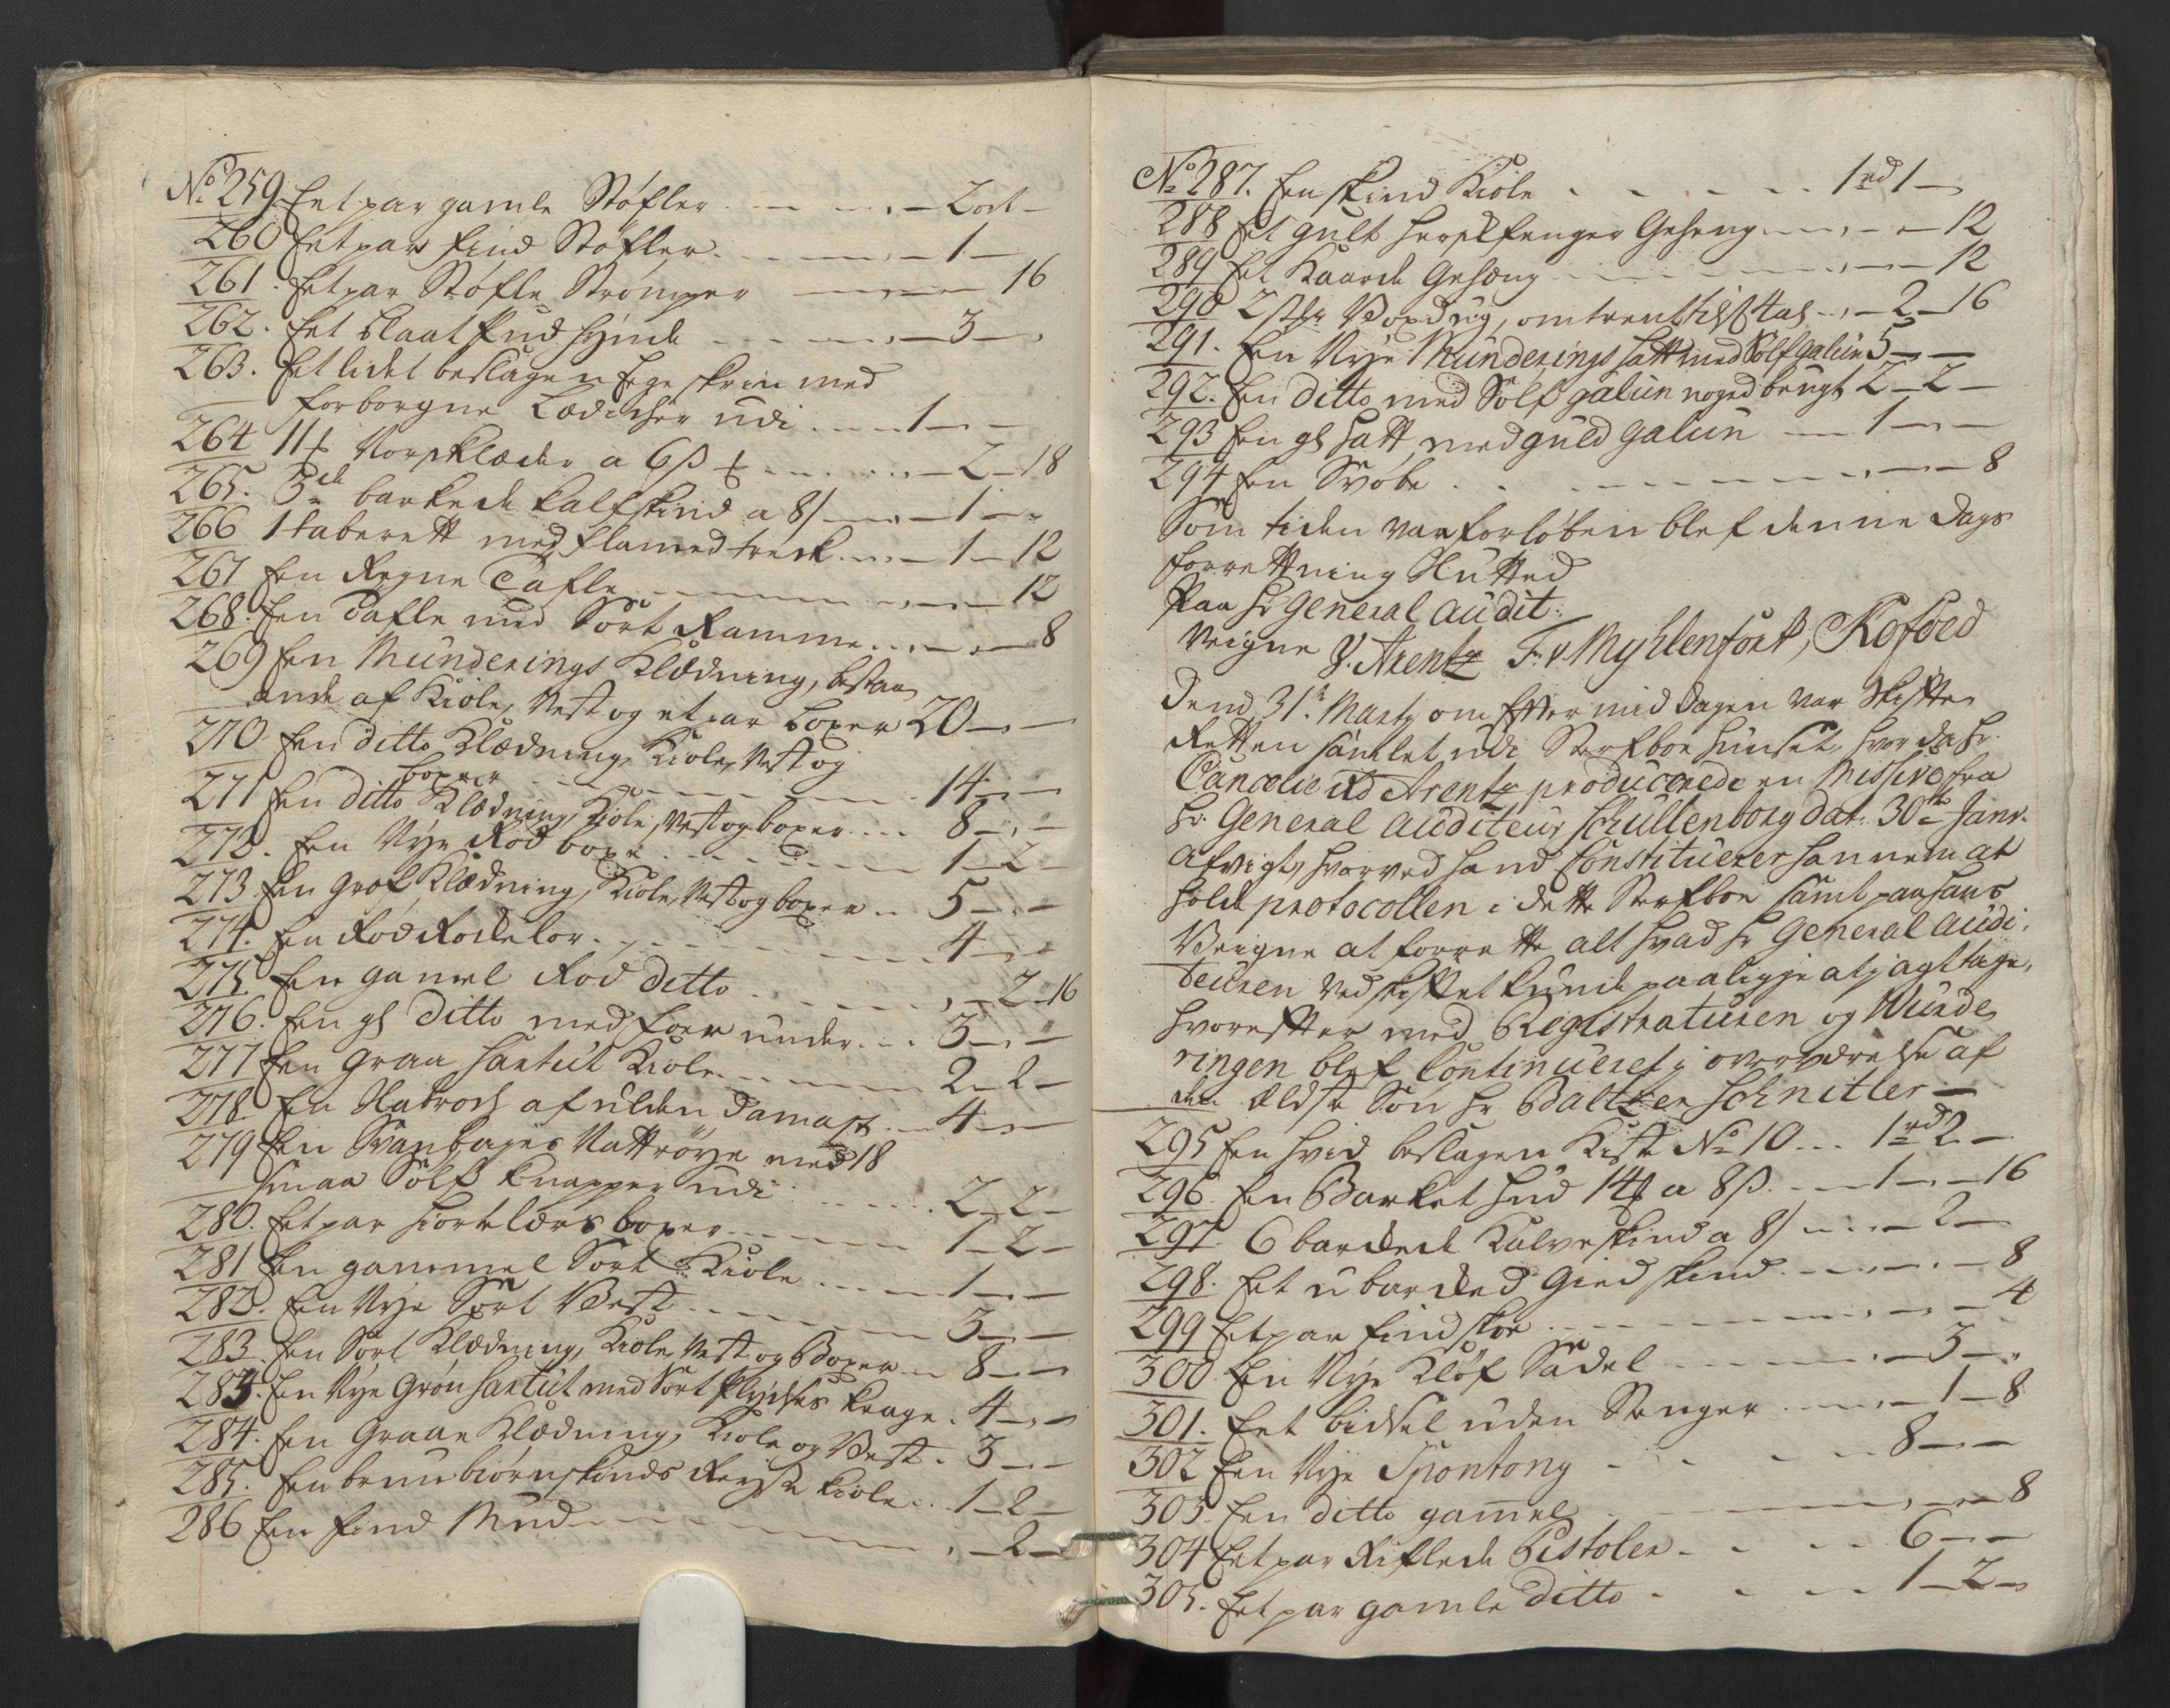 No 259. Eet par gamle Støfler - - - 2 ort -
260 Eet par find Støfler - - - 1 -
261. Eet par Støfle Strømper - - - 16
262. Eet blaat skind hÿnde - - - 3 -
263. Et lidet beslagen Ege skrin med
forborgne Lædicher udi - - 1 - -
264 11 Vorpklæder a 6 ß - - - 2 - 18
265. 3de barkede kalfskind a 8 ß - - 1 - -
266 1 taberett med flamed treck - - 1 - 12
267 Een Regne Tafle - - - 12
268. Een Tafle med Sort Ramme - - - 8
269 Een Munderings Klædning, bestaa
ende af Kiole, Vest og et par boxer 20 - -
270 Een ditto Klædning, Kiole, Vest og
boxer - - - 14 - -
271 Een ditto Klædning, Kiole, Vest og boxer - - 8 - -
272. Een Nÿe Rød boxe - - - 1 - 2 -
273 Een Grof Klædning, Kiole, Vest og boxer - - 5 - -
274. Een Rød Rockelor - - - 4 - -
275 Een gamel Rød ditto - - - 2 - 16
276. Een gl ditto med foer under - - 3 - -
277 Een Graa Surtut Kiole - - 2 - 2 -
278 Een Slabrock af ulden Damask - - 4 - -
279 Een Svanbajes Nattrøÿe med 18
smaa Sølf knapper udi - - 2 - 2 -
280. Eet par hiortelærs boxer - - 1 - 2 -
281 Een gammel Sort Kiole - - 1 - -
282. Een Nÿe Sort Vest - - 3 - -
283. Een Sort Klædning, Kiole, Vest og Boxer - 8 - -
283. Een Nÿe Grøn Surtut med Sort Plÿdses krage - 4 - -
284. Een Graae Klædning, Kiole og Vest - 3 - -
285. Een brun biørnskinds Reyse kiole - - 1 - 2 -
286 Een find Mud - - - 2 -
No 287. Een skind Kiole - - - 1 rd 1 -
288 Et gult Geheng - - - 12
289 Et Kaarde Gehæng - - - 12
290 2 st. Voxdug, omtrent - - 2 - 16
291. Een Nÿe Munderings hatt med Sølf galun 5 - -
292. Een ditto med Sølf galun noged brugt 2 - 2 -
293 Een gl hatt med guld galun - 1 - -
294 Een Svøbe - - - 8
Som tiden var forløben blef denne Dags
forrettning Slutted
Paa Hr General Audit:
Veigne J. Arentz F. v. Myhlenfort, Kofoed
Dend 31te Martÿ om Efftermiddagen var Skiffte
Retten samlet udi Sterfboe huuset, hvor da Hr.
Cancelie rd Arentz producerede en Missive fra
Hr. General Auditeur Schullenborg dat: 30te Janr.
Afvigt, hvorved hand Constituerer hannem at
holde protocollen i dette Sterfboe samt paa hans
Veigne at forrette alt hvad Hr General Audi
teuren ved skifftet kunde paaligge at jagttage,
hvorefter med Registraturen og Wurde
ringen blef Continueret i overværelse af
den ældste Søn Hr Baltzer Schnitler -
295 Een hvid beslagen Kiste No 10 - - 1 rd 2 -
296. Een Barket hud 14 a 8 ß - - 1 - 16
297. 6 barkede Kalveskind a 8 ß - - 2 -
298. Eet ubarcked Giedskind - - - 8
299 Eet par find skoe - - - 4
300 Een Nÿe Kløf Sadel - - - 3 -
301. Eet bidsel uden Stenger - - - 1 - 8
302 Een Nÿe Spontong - - 8 - -
303. Een ditto gamel - - - 8
304 Eet par Riflede Pistoler - - 6 - -
305. Eet par gamle Ditto - - 1 - 2 -